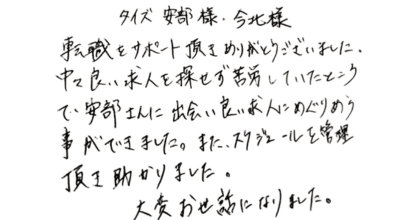 タイズ 安部様・今北様
転職をサポート頂きありがとうございました。
中々良い求人を探せず苦労していたところ
で、安部さんに出会い良い求人にめぐりあう
事ができました。また、スケジュールを管理
頂き助かりました。
大変お世話になりました。